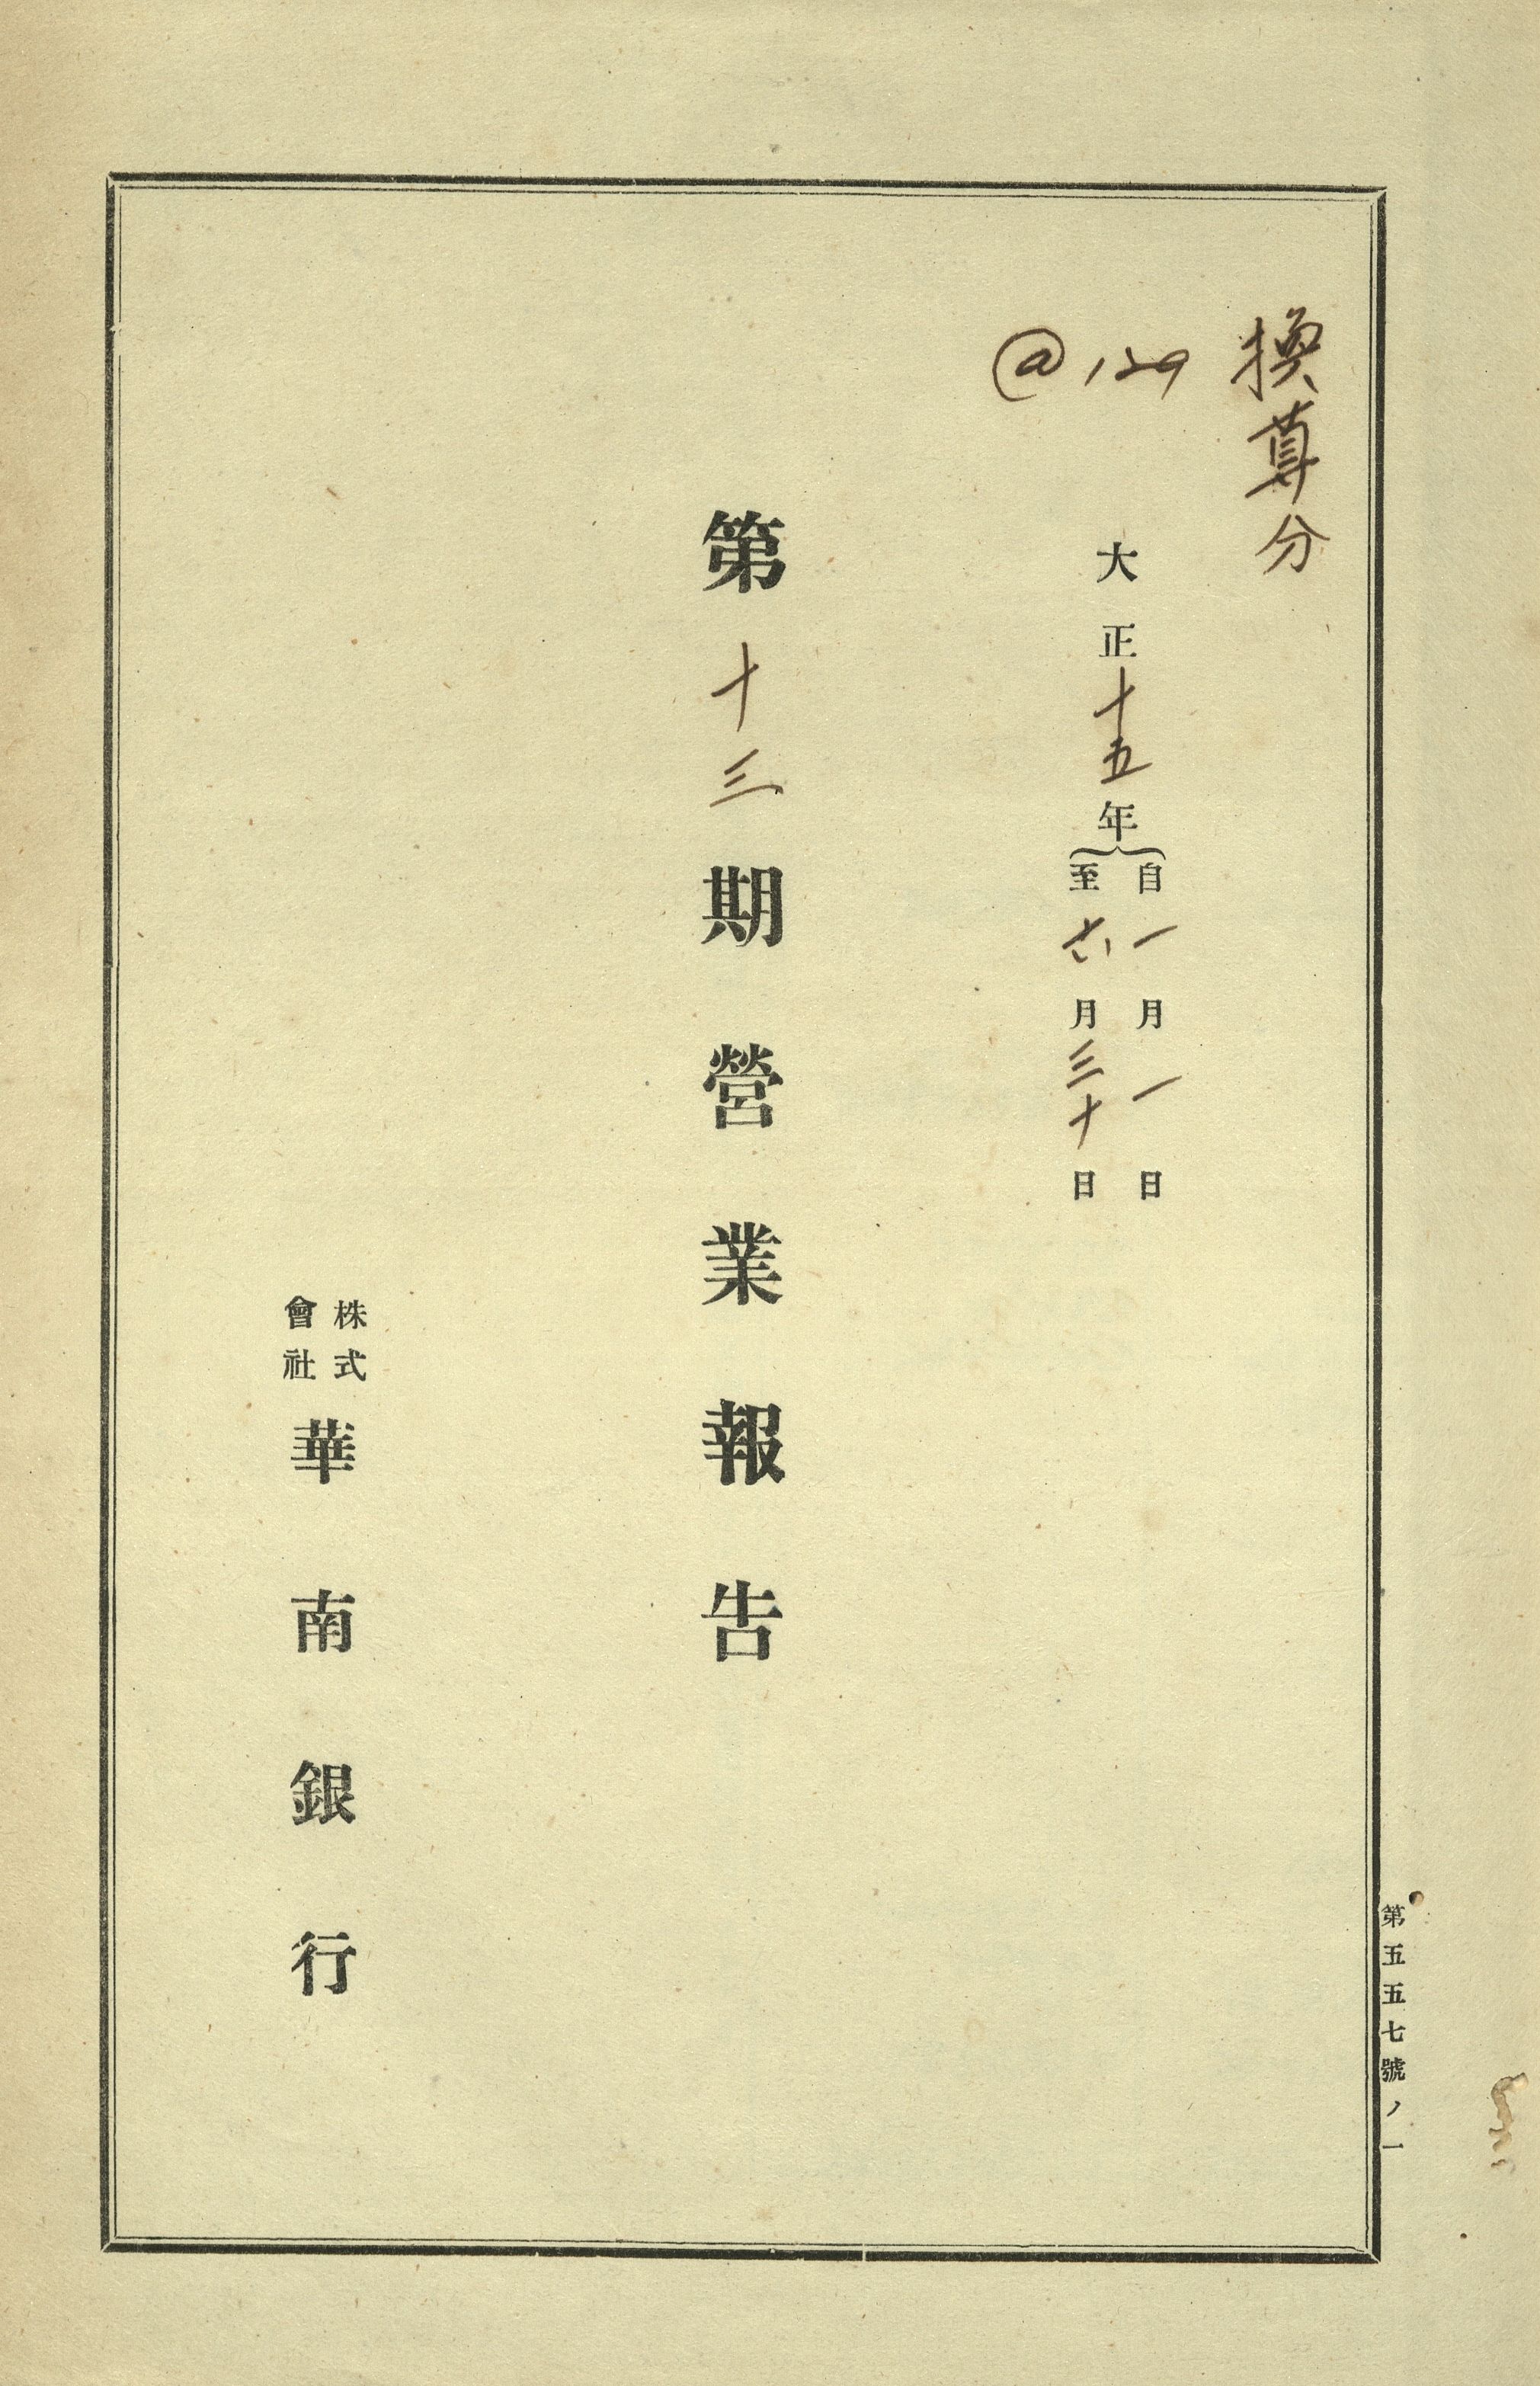 換算分
@129
大正十五年
自一月一日
至六月三十日
第十三期營業報告
株式會社
華南銀行
第五五七號ノ一